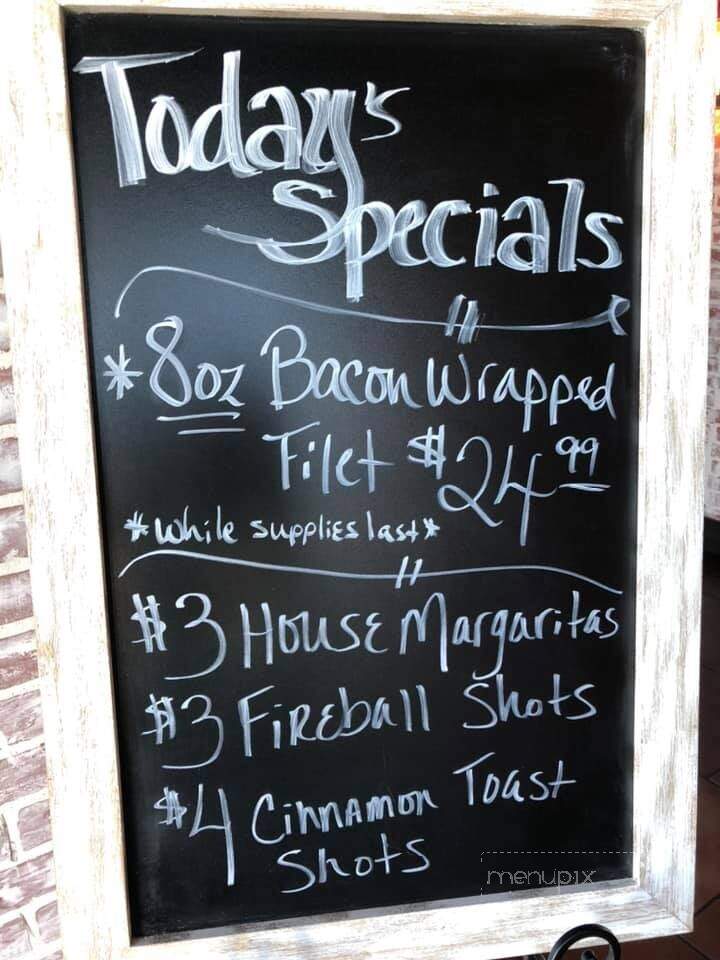 Today's
Specials
*8oz Bacon Wrapped
Filet $24.99
*while supplies last*
$3 House Margaritas
$3 Fireball Shots
$4 Cinnamon Toast
Shots
menupix